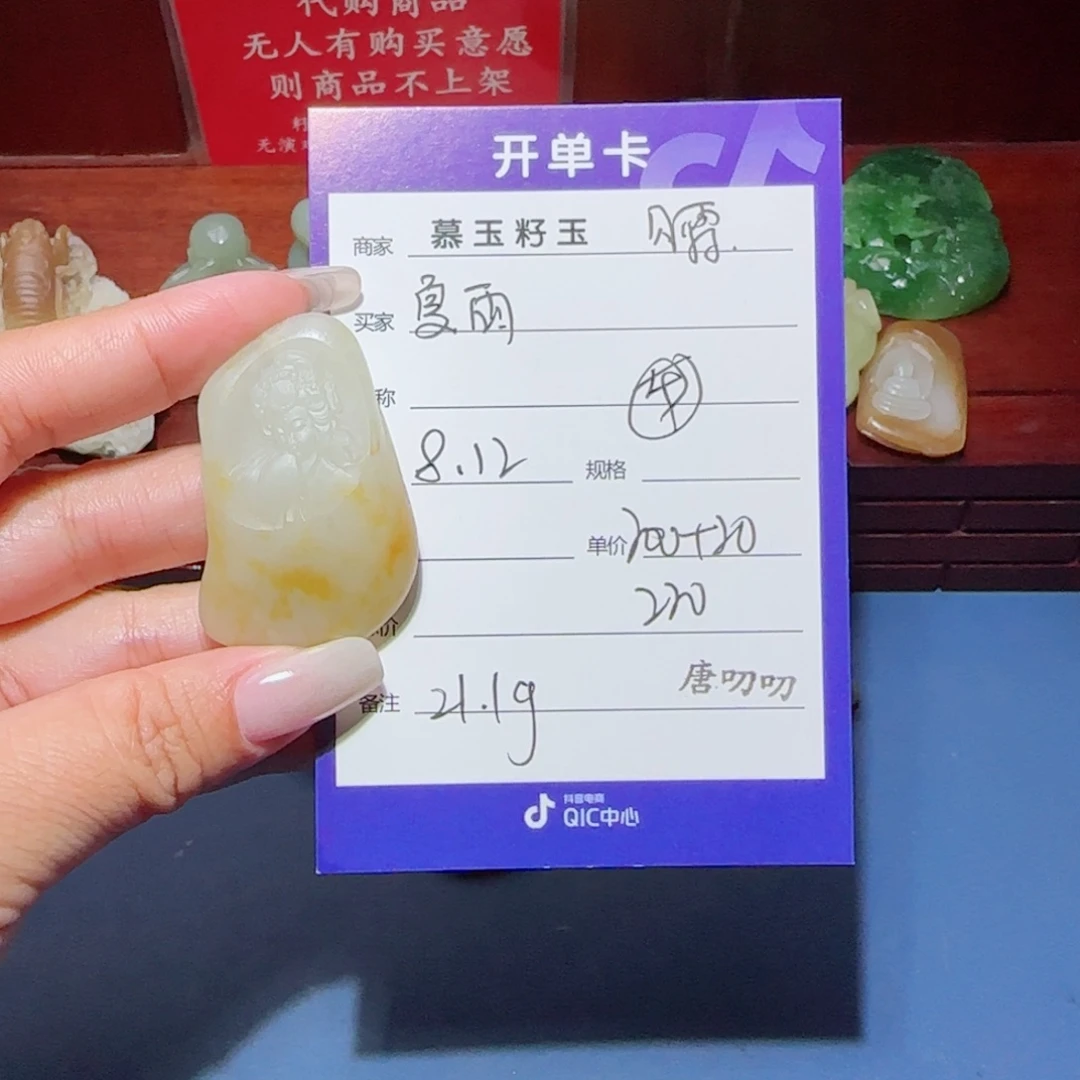 代购商品
无人有购买意愿
则商品不上架
无演
开单卡
商家 慕玉籽玉
买家 夏雨
称
8.12 规格
单价 200+20
220
价
备注 21.1g 唐叨叨
抖音电商
QIC中心